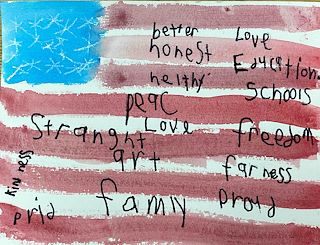 better Love
honest Education
helthy Schools
peac
Stranght Love freedom
art farness
kinness
prid famly proud